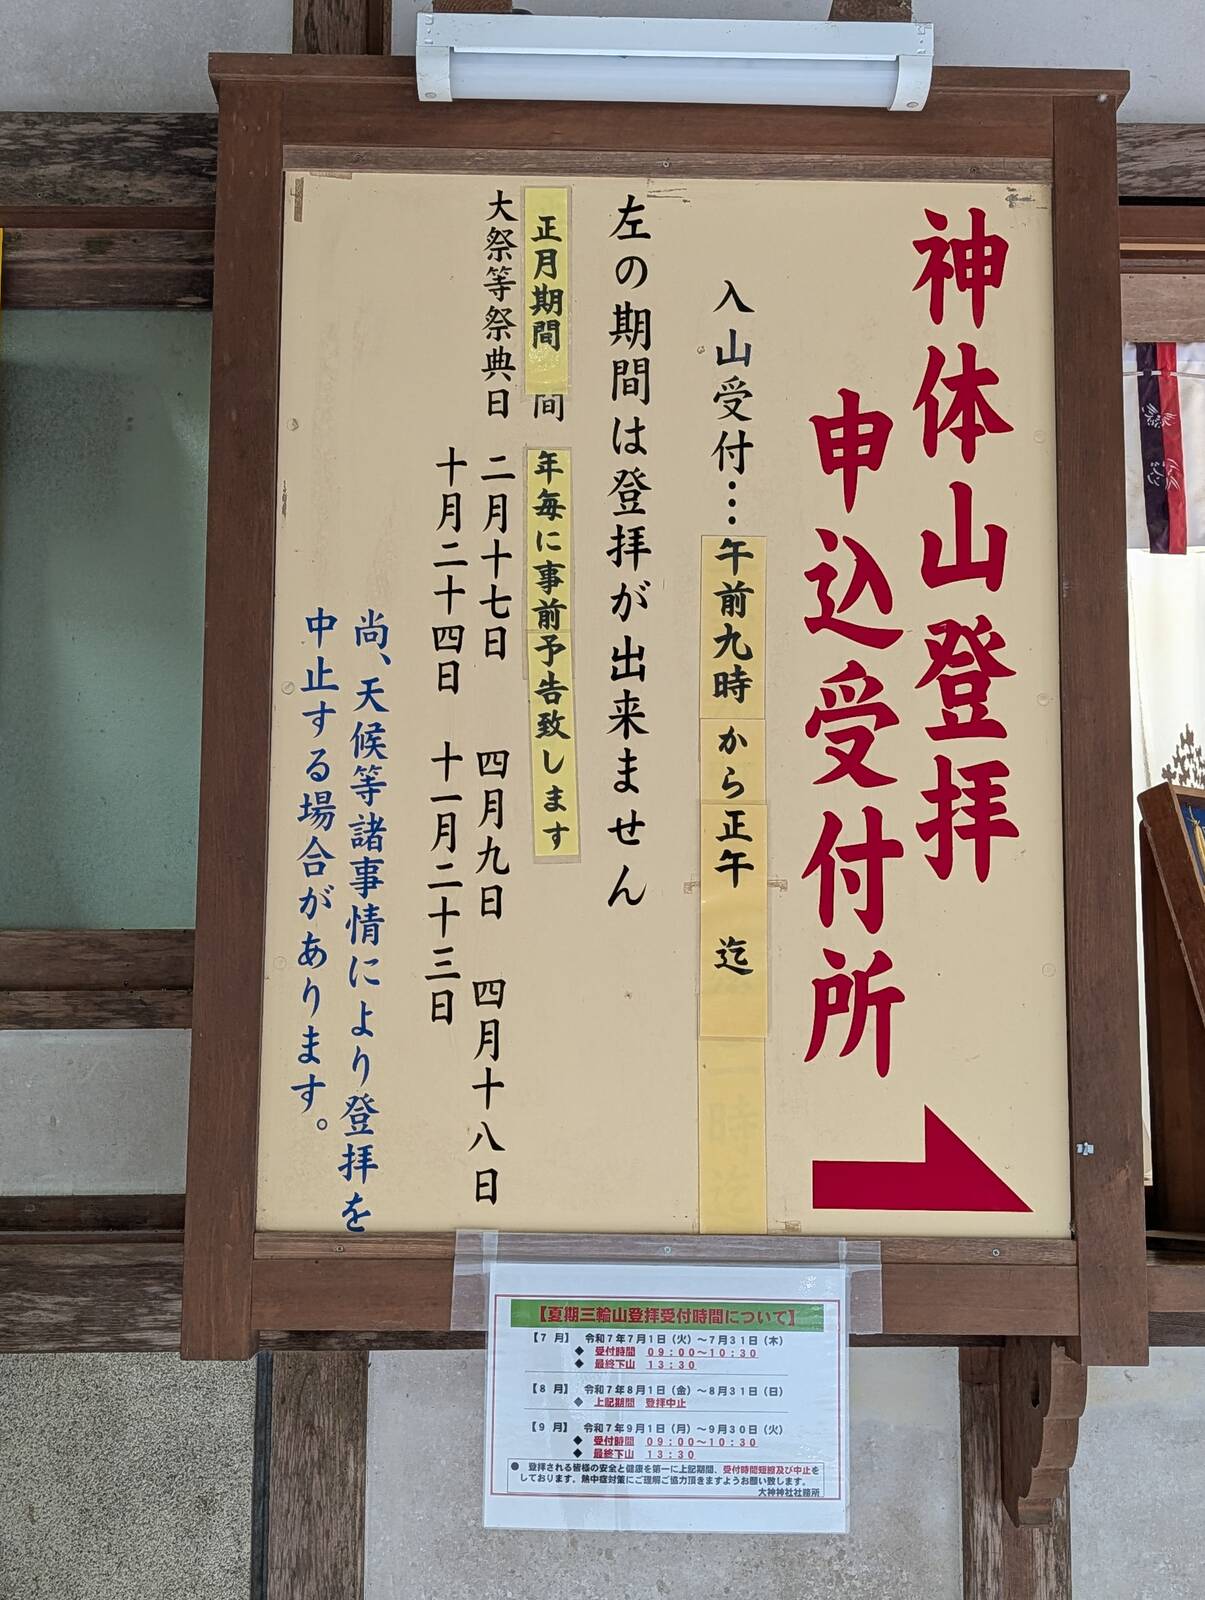 神体山登拝
申込受付所
入山受付…午前九時から正午 迄
左の期間は登拝が出来ません
正月期間 間 年毎に事前予告致します
大祭等祭典日 二月十七日 四月九日 四月十八日
十月二十四日 十一月二十三日
尚、天候等諸事情により登拝を
中止する場合があります。
【夏期三輪山登拝受付時間について】
【7 月】 令和7年7月1日(火)~7月31日(木)
◆ 受付時間 09:00~10:30
◆ 最終下山 13:30
【8 月】 令和7年8月1日(金)~8月31日(日)
◆ 上記期間 登拝中止
【9 月】 令和7年9月1日(月)~9月30日(火)
◆ 受付時間 09:00~10:30
◆ 最終下山 13:30
● 登拝される皆様の安全と健康を第一に上記期間、受付時間短縮及び中止を
しております。熱中症対策にご理解ご協力頂きますようお願い致します。
大神神社社務所